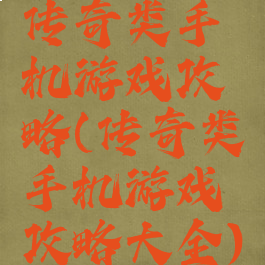 传奇类手
机游戏攻
略(传奇类
手机游戏
攻略大全)